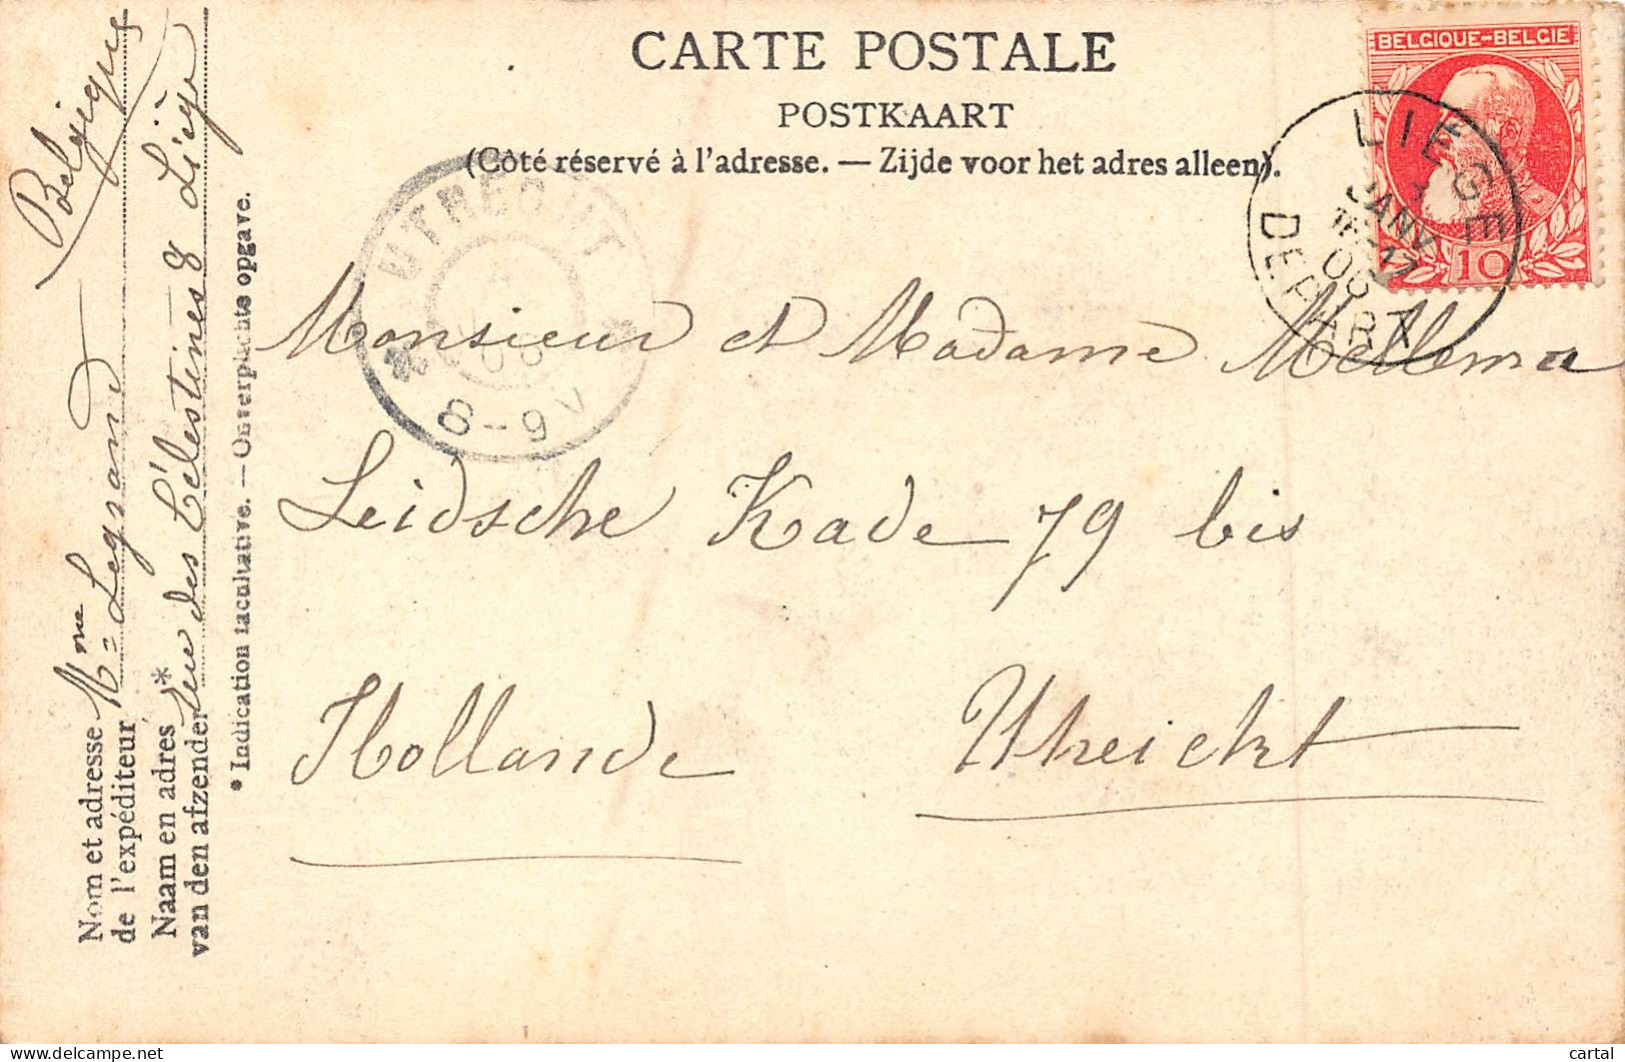 CARTE POSTALE
POSTKAART
(Côté réservé à l'adresse. — Zijde voor het adres alleen).
BELGIQUE-BELGIE
10
LIEGE
JANV
DEPART
UTRECHT
8-9 V
Monsieur et Madame Mellema
Leidsche Kade 79 bis
Hollande Utrecht
Nom et adresse
de l'expéditeur
Naam en adres *
van den afzender
Mme Legrand
rue des Célestines 8 Liège
Belgique
* Indication facultative. — Onverplichte opgave.
delcampe.net
cartal